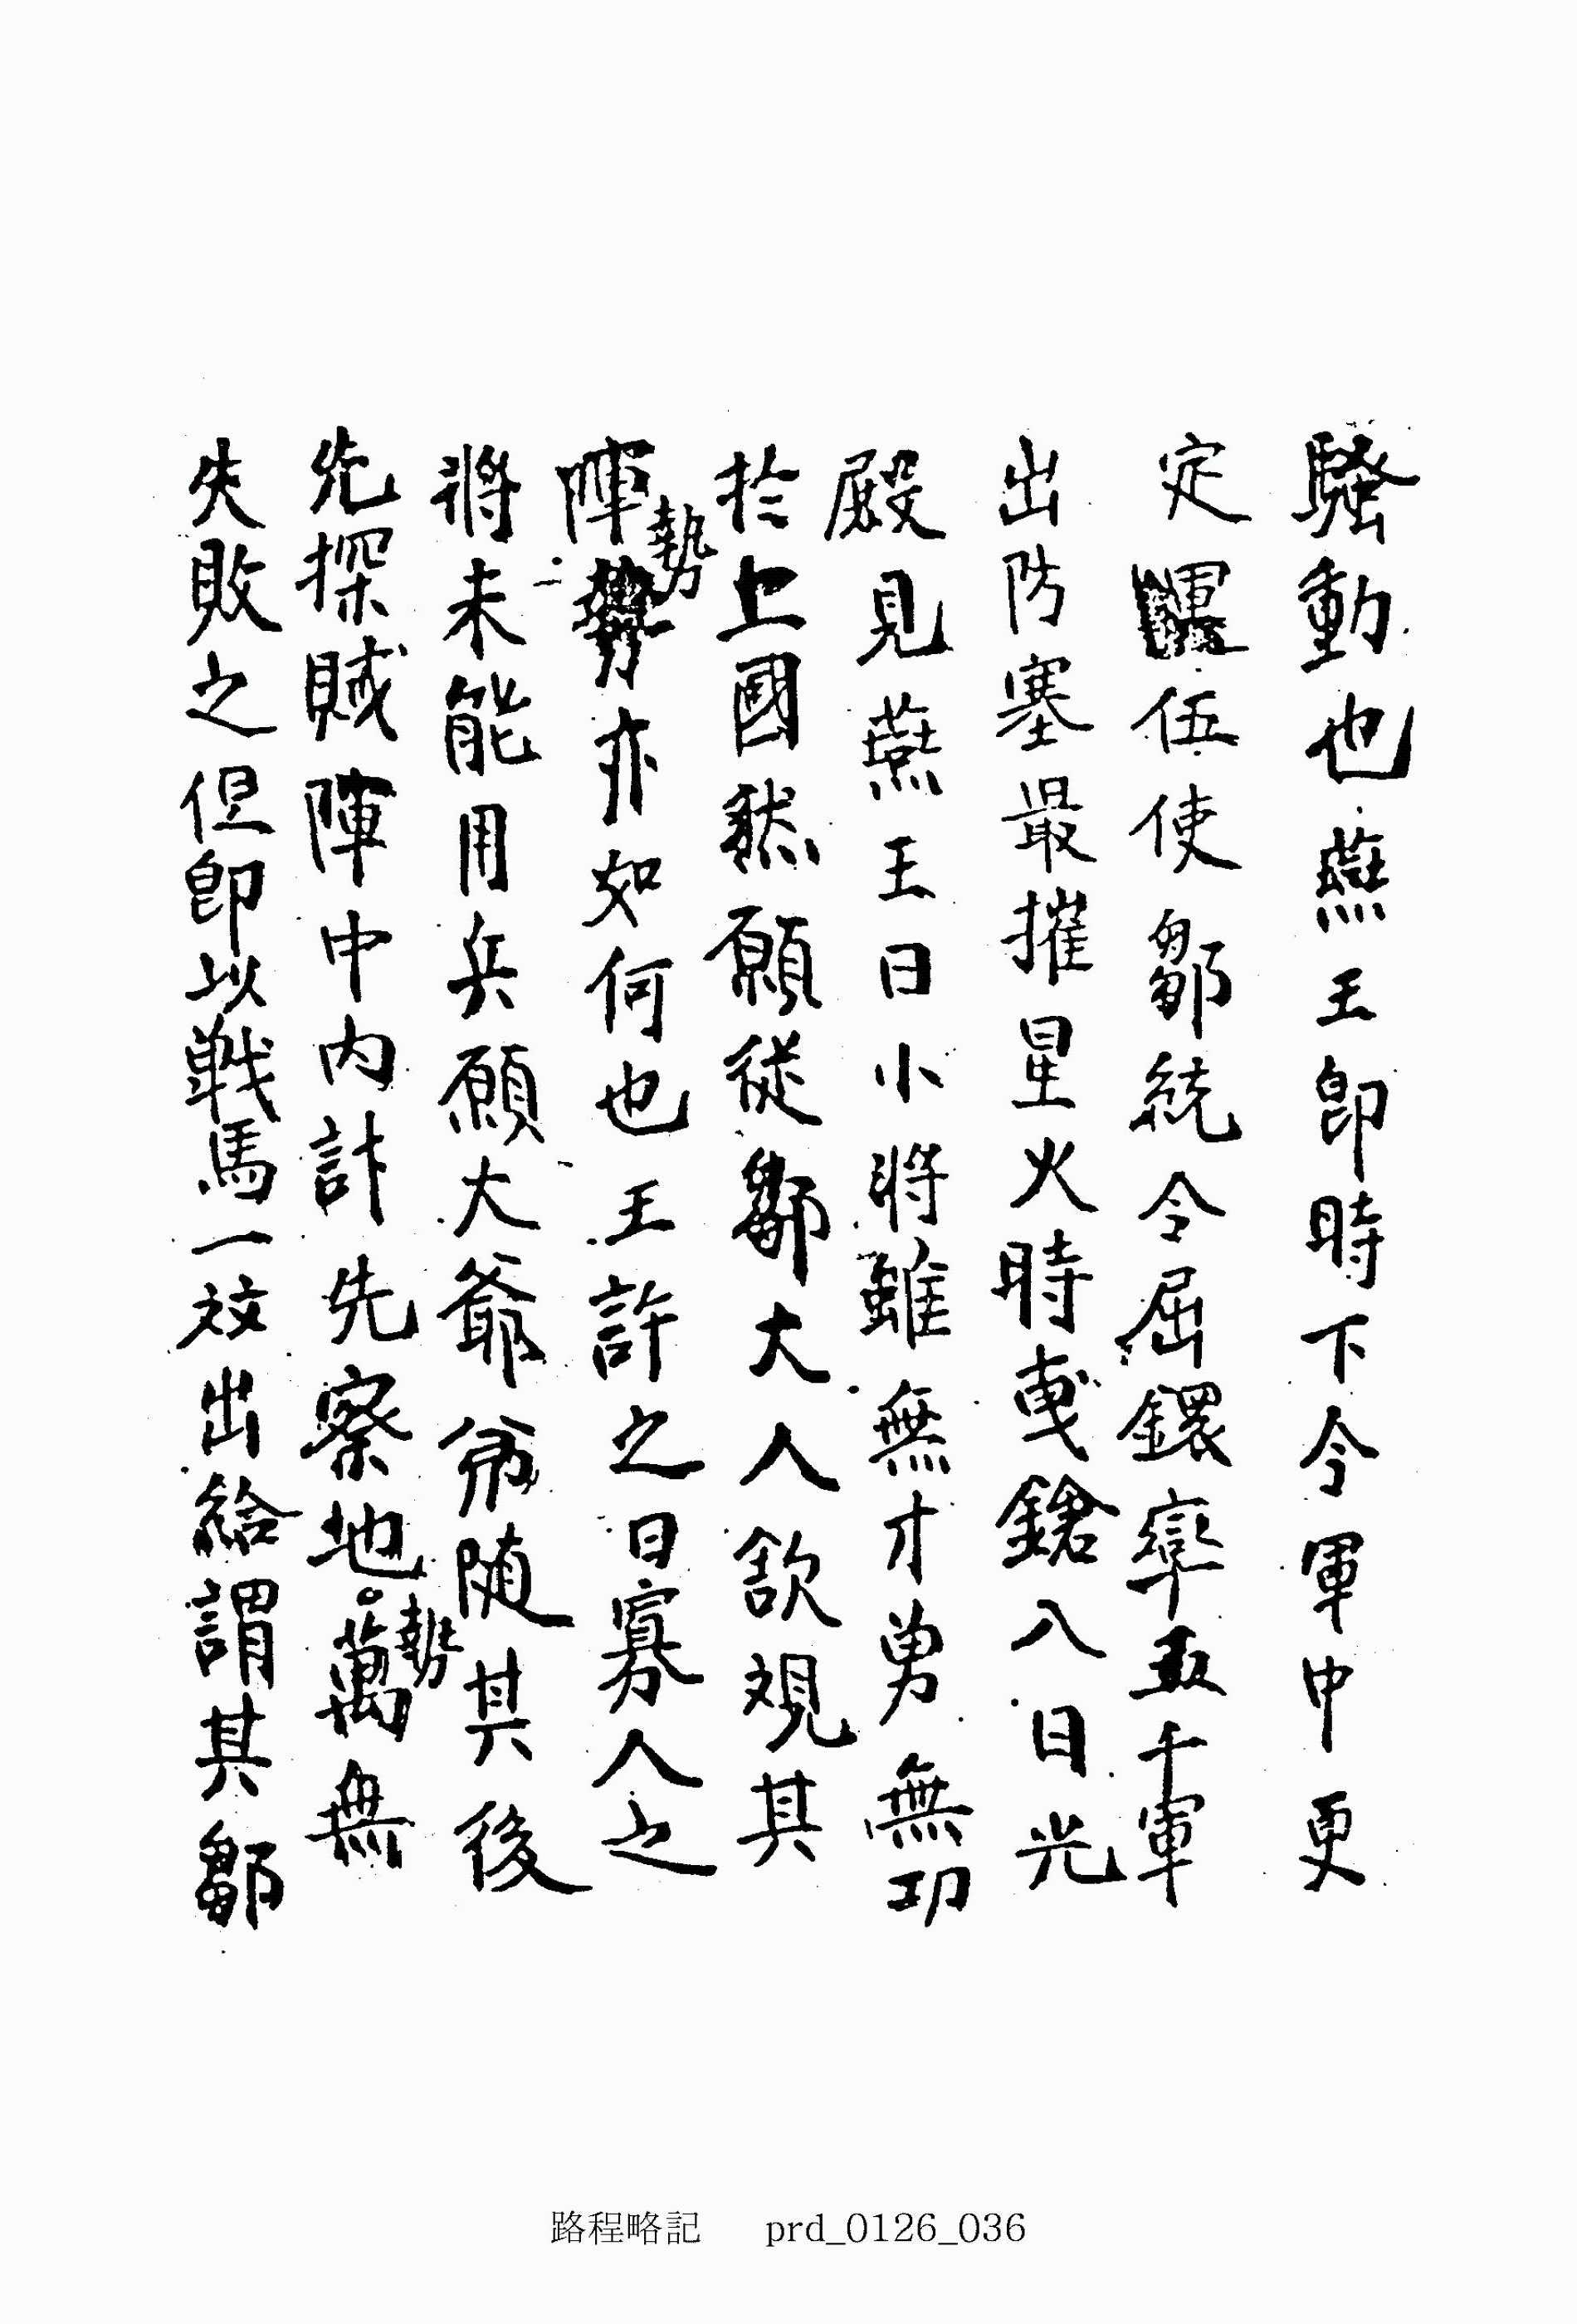 騷動也燕王卽時下令軍中更
定伍使鄒統令屈鐶率五千軍
出防塞最摧星火時曳鎗八日光
殿見燕王曰小將雖無才勇無功
於上國然願從鄒大人欲覌其
陣勢亦如何也王許之曰寡人之
將未能用兵願大爺爺随其後
先探賊陣中內計先察地勢萬無
失敗之但卽以戦馬一效出給謂其鄒
路程略記 prd_0126_036